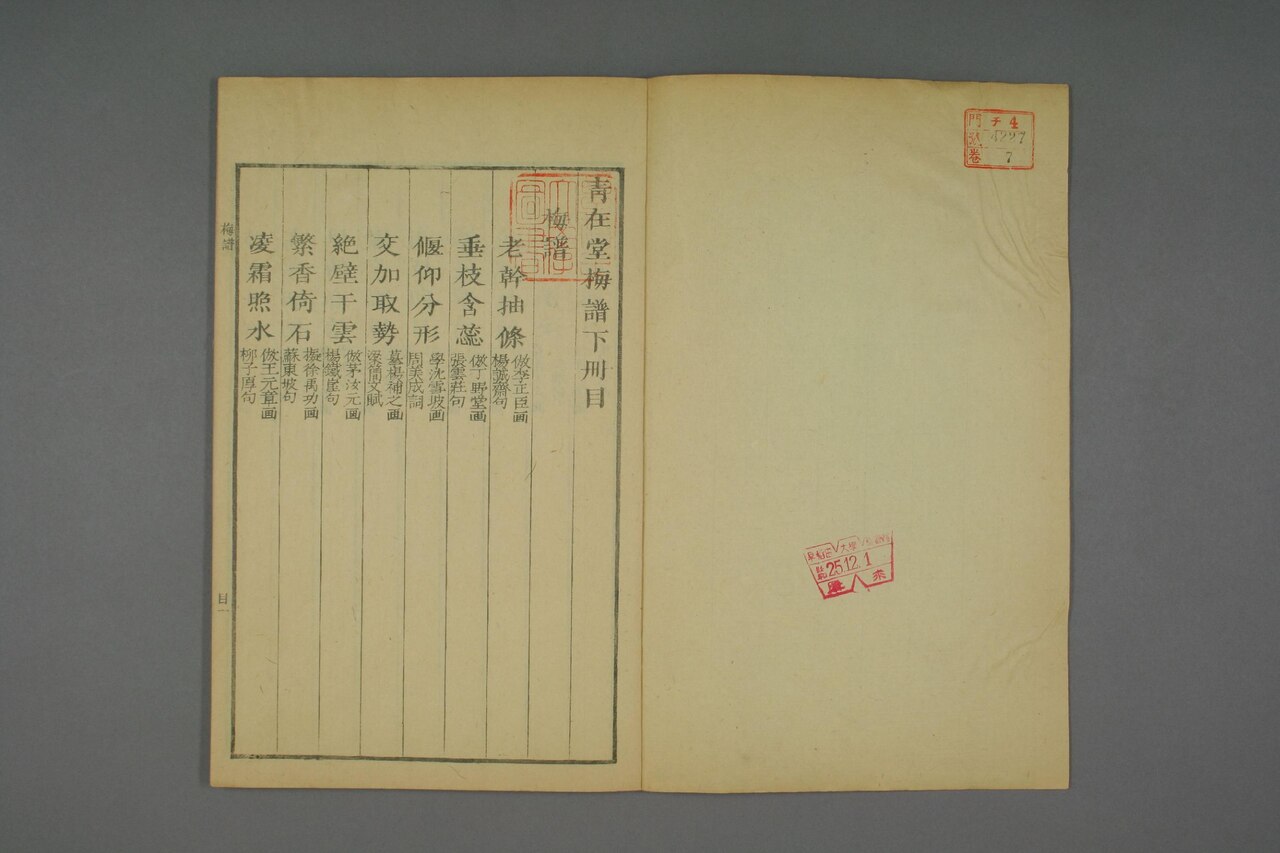 門 チ 4
號 4227
卷 7
25.12.1
青在堂梅譜下冊目
梅譜
老幹抽條
倣李正臣画
楊誠齋句
垂枝含蕊
倣丁野堂画
張雲莊句
偃仰分形
學沈雪坡画
周美成詞
交加取勢
摹楊補之画
梁簡文賦
絶壁干雲
倣茅汝元画
楊鐵崖句
繁香倚石
擬徐禹功画
蘇東坡句
凌霜照水
倣王元章画
柳子厚句
梅譜
目一